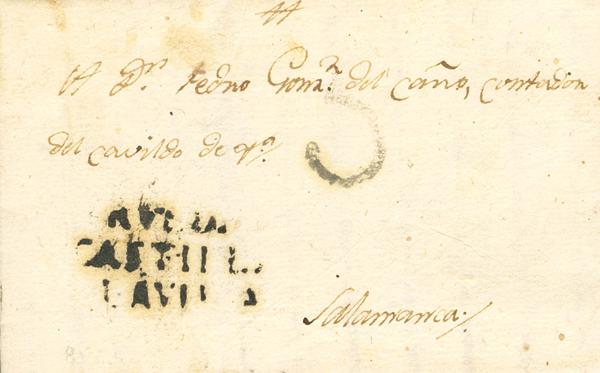 A Dn. Pedro Gonz. del caño, contador
del cavildo de
CASTILLA
LAVIEJA
Salamanca.